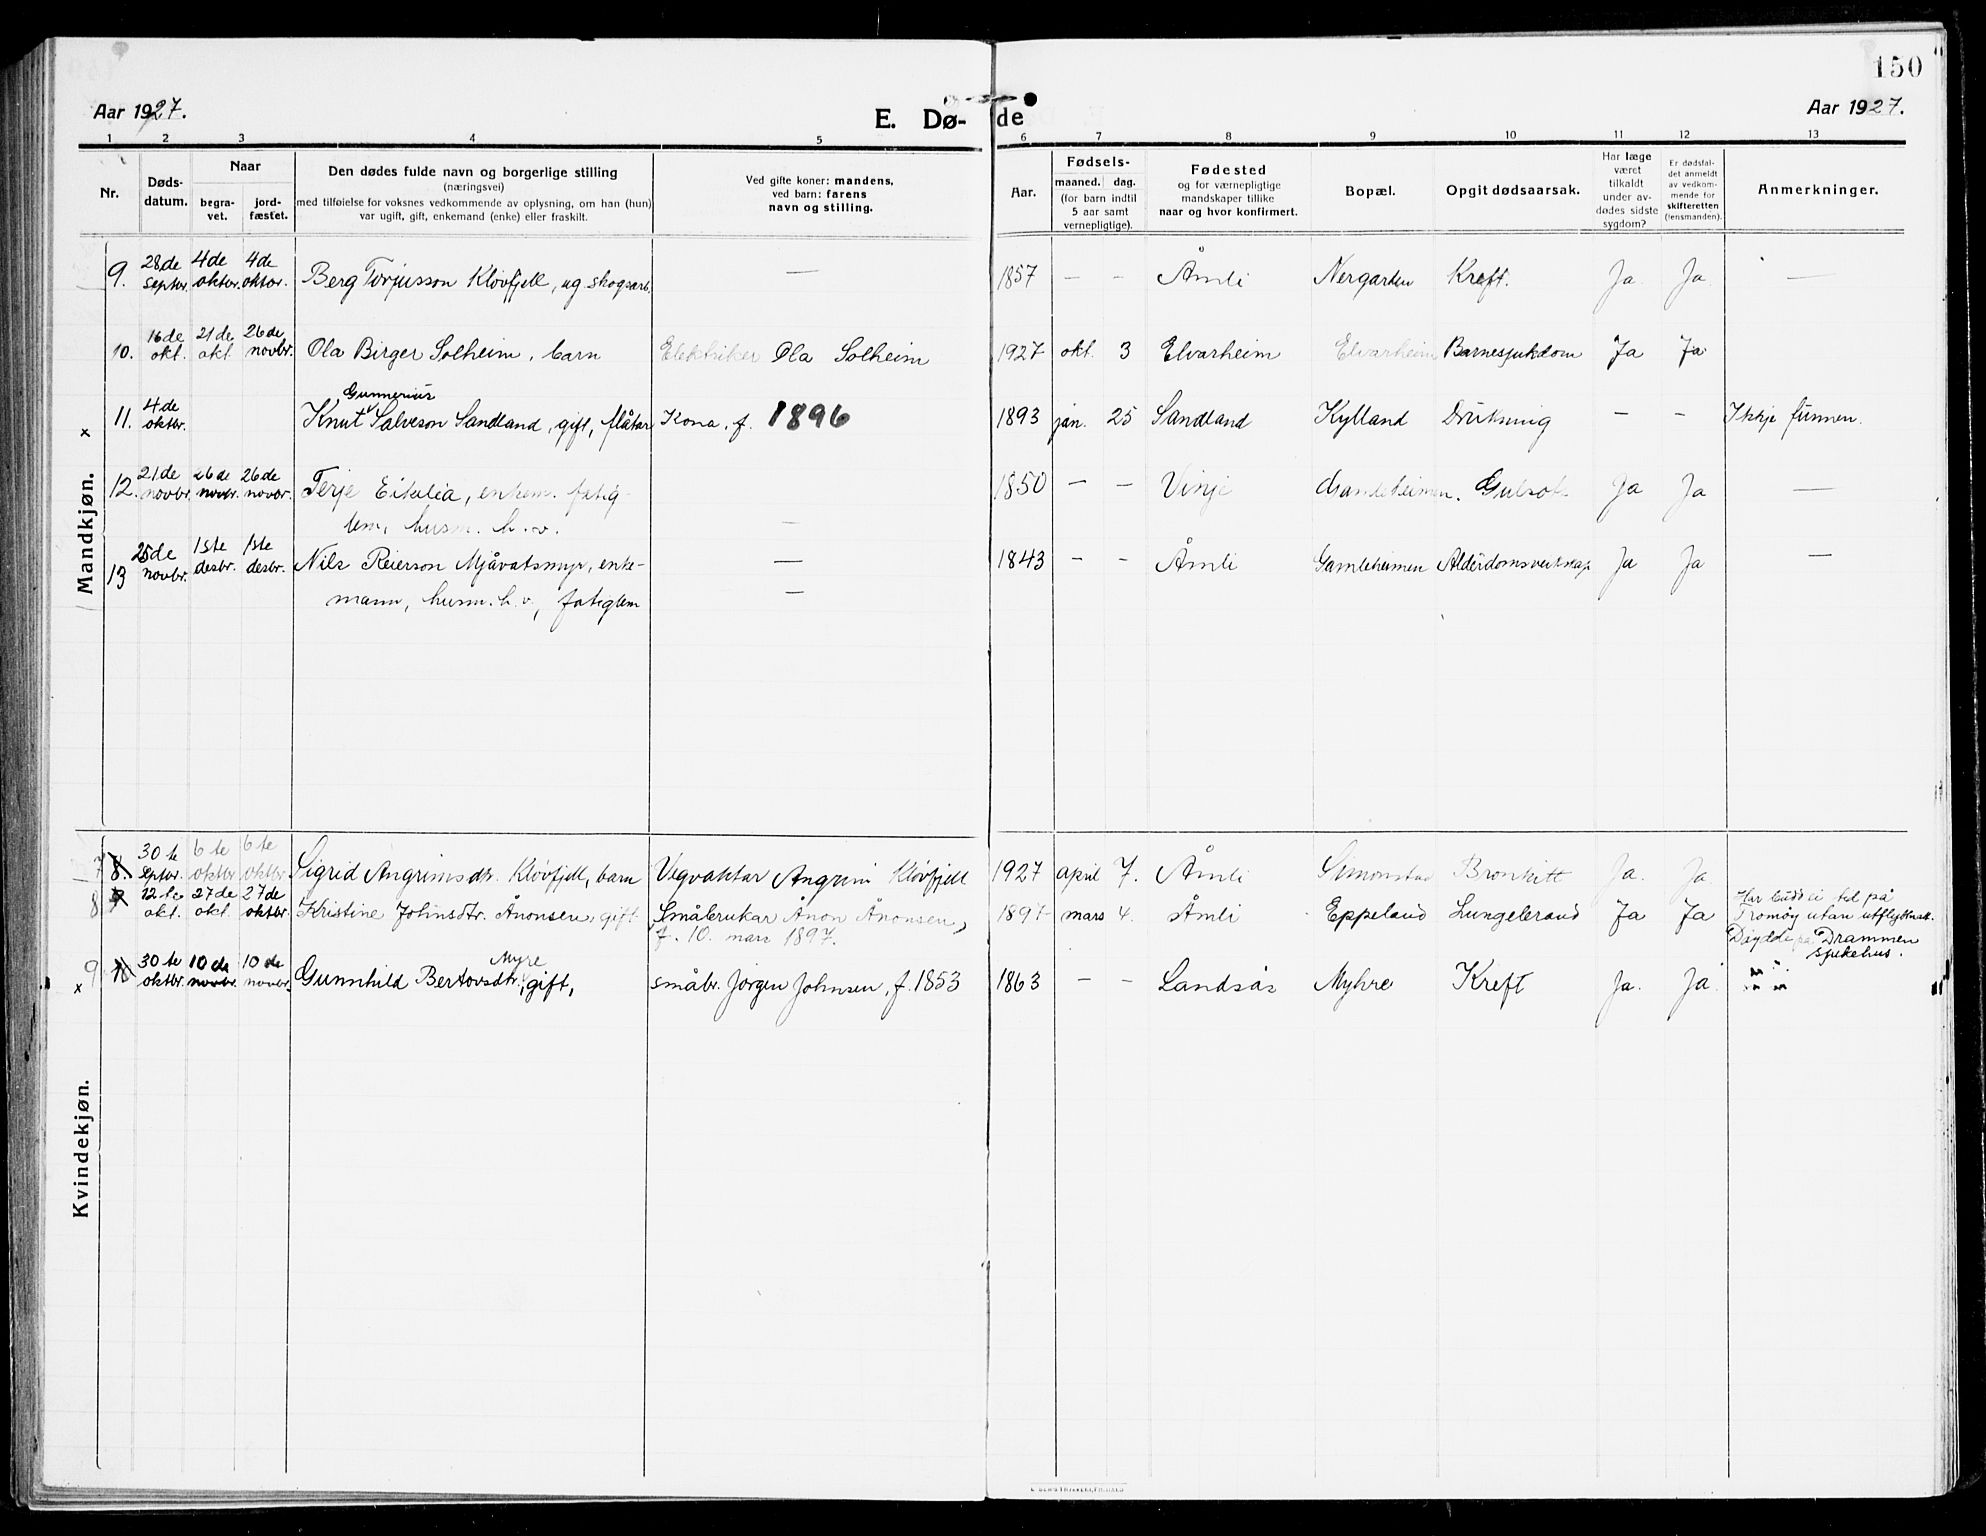 150
Aar 1927.
E. Dø-de
Aar 1927.
1 2 3 4 5 6 7 8 9 10 11 12 13
Nr.
Døds-datum.
Naar
begra-vet.
jord-fæstet.
Den dødes fulde navn og borgerlige stilling
(næringsvei)
med tilføielse for voksnes vedkommende av oplysning, om han (hun)
var ugift, gift, enkemand (enke) eller fraskilt.
Ved gifte koner: mandens,
ved barn: farens
navn og stilling.
Aar.
Fødsels-
maaned. dag.
(for barn indtil
5 aar samt
vernepligtige).
Fødested
og for værnepligtige
mandskaper tillike
naar og hvor konfirmert.
Bopæl.
Opgit dødsaarsak.
Har læge
været
tilkaldt
under av-
dødes sidste
sygdom?
Er dødsfal-
det anmeldt
av vedkom-
mende for
skifteretten
(lensmanden).
Anmerkninger.
Mandkjøn.
9. 28de septbr. 4de oktbr. 4de oktbr. Berg Torjusson Kløvfjell, ug skogsarb. — 1857 — - Åmli Nergarden Kreft. Ja Ja —
10. 16de okt. 21de okt 26de novbr. Ola Birger Solheim, barn Elektriker Ola Solheim 1927 okt. 3 Elvarheim Elvarheim Barnesjukdom Ja Ja
Gunnerius
x 11. 4de oktbr. Knut Salveson Sandland, gift, flåtar Kona, f. 1896 1893 jan. 25 Sandland Kylland Drukning — — Ikkje funnen.
12. 21de novbr. 26de novbr. 26de novbr. Terje Eikelia, enkem. fatig- 1850 — — Vinje Gamleheimen. Gulsot. Ja Ja —
lem, husm. h.v. —
13 25de novbr. 1ste desbr. 1ste desbr. Nils Reierson Mjåvatsmyr, enke- — 1843 - - Åmli Gamleheimen Alderdomsveikskap Ja Ja —
mann, husm. h.v., fatiglem —
Kvindekjøn.
7 8. 30te septbr. 6te oktbr 6te oktbr. Sigrid Angrimsdtr. Kløvfjell, barn Vegvaktar Angrim Kløvfjell 1927 april 7. Åmli Simonstad Bronkitt Ja. Ja
8 9 12te okt. 27de okt. 27de oktbr. Kristine Johnsdtr. Ånonsen, gift Småbrukar Ånon Ånonsen, 1897 mars 4. Åmli Eppeland Lungebrand Ja Ja Har budd ei tid på
f. 10. mars 1897. Tromøy utan utflyttnatt.
Døydde på Drammen
sjukehus.
Myre
x 9 10 30te oktbr. 10de novbr. 10de novbr. Gunnhild Bertovsdtr, gift, småbr. Jørgen Johnsen, f. 1853 1863 — - Landsås Myhre Kreft Ja. Ja